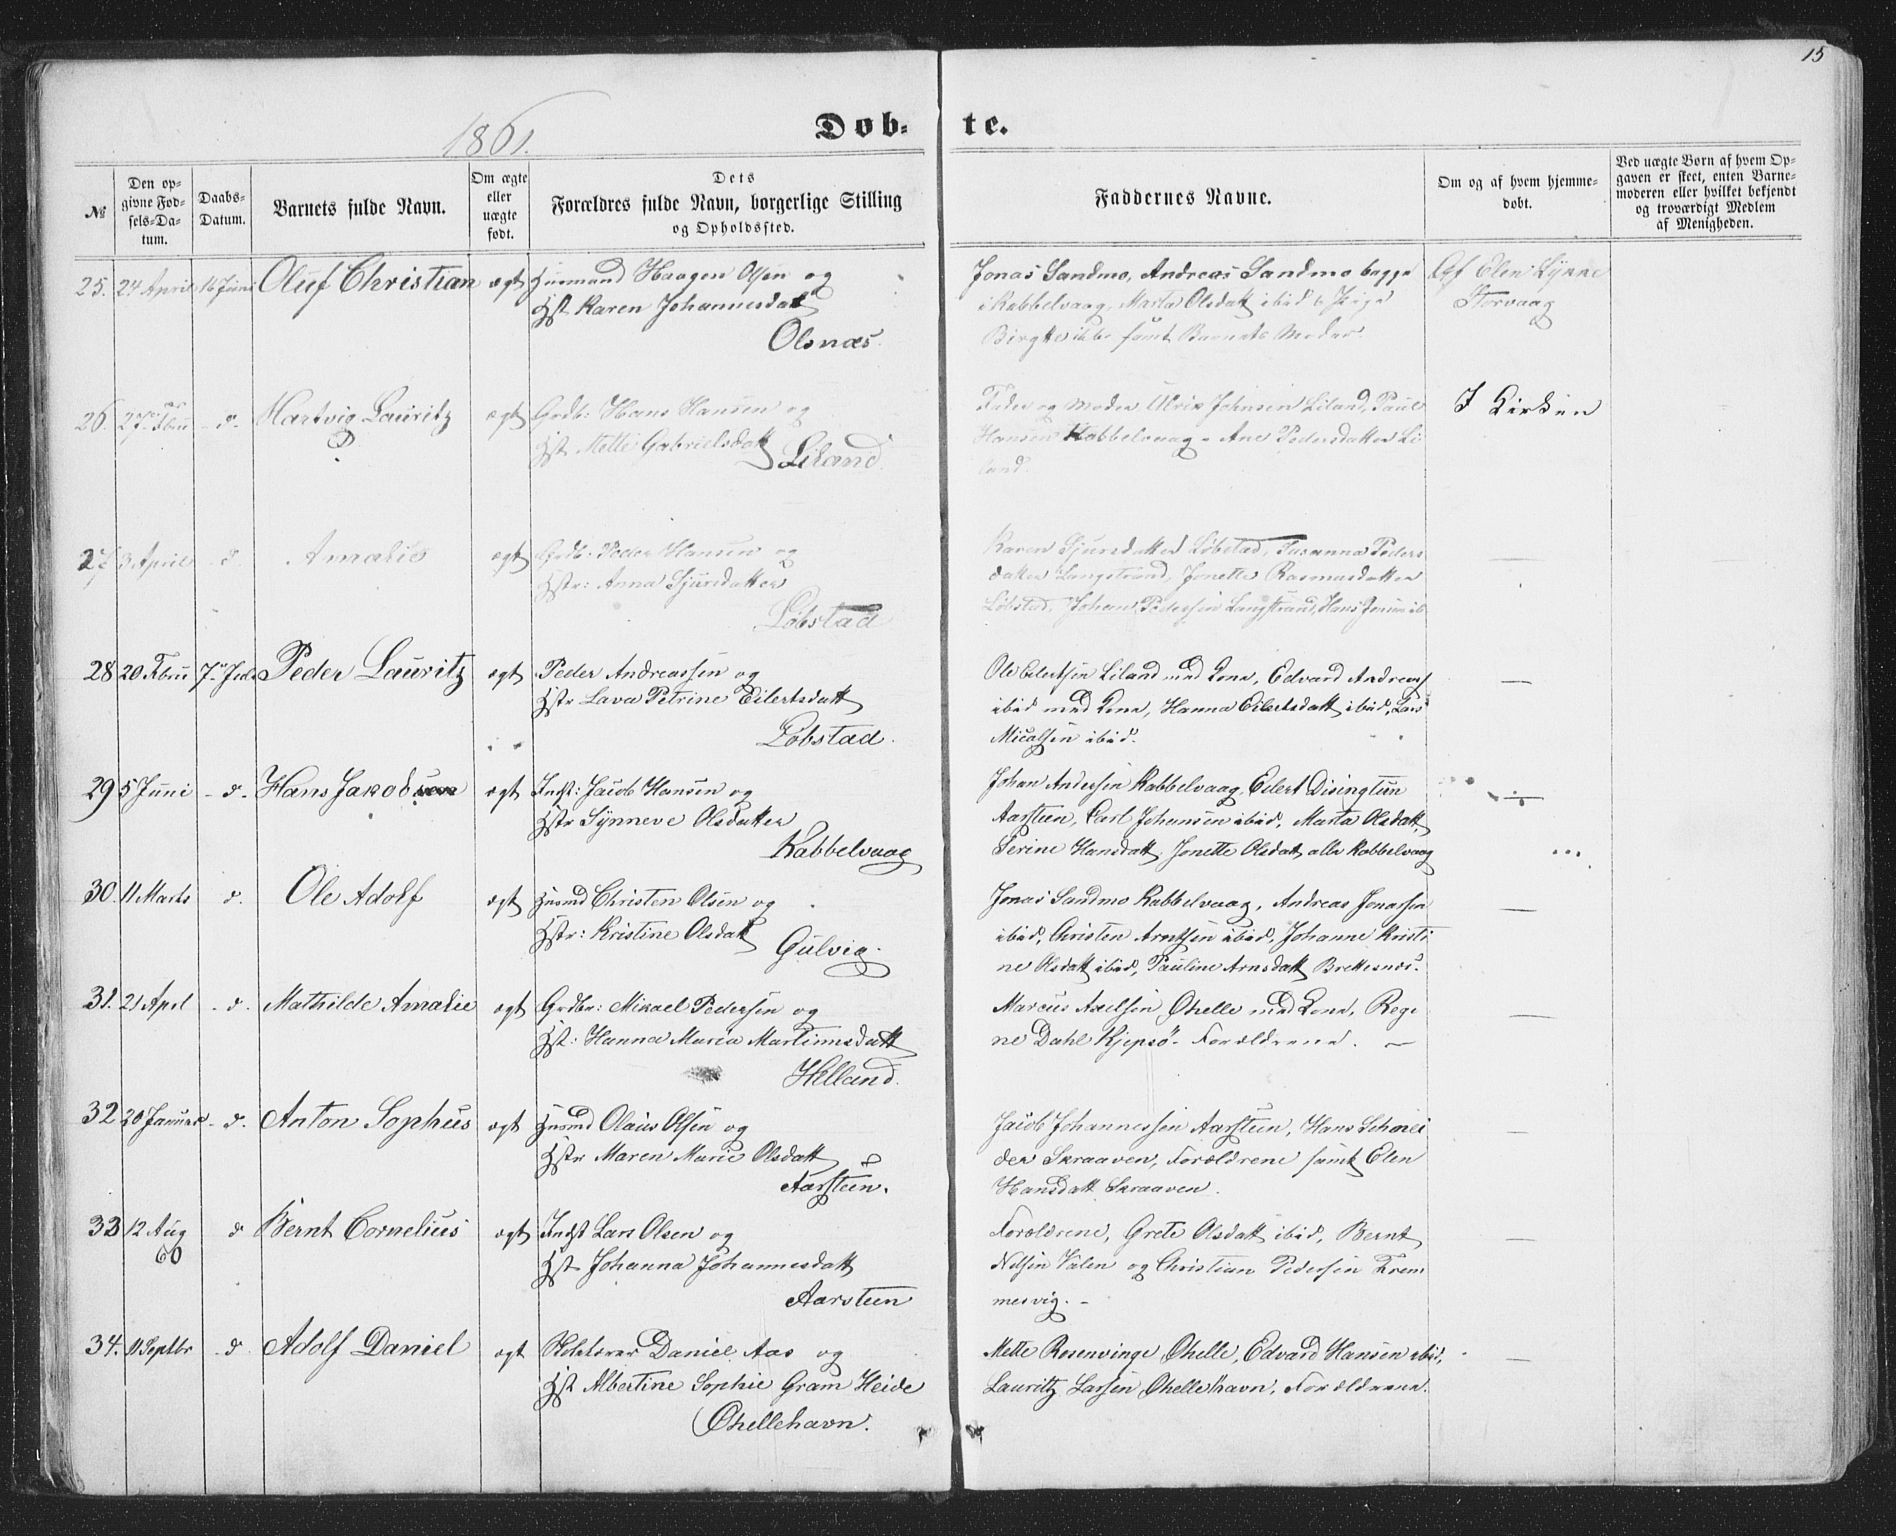 15
1861.
Døb- te.
№
Den opgivne Fødsels-Datum.
Daabs-Datum.
Barnets fulde Navn.
Om ægte eller uægte født.
Dets
Forældres fulde Navn, borgerlige Stilling
og Opholdssted.
Faddernes Navne.
Om og af hvem hjemmedøbt.
Ved uægte Børn af hvem Opgaven er skeet, enten Barnemoderen eller hvilket bekjendt og troværdigt Medlem af Menigheden.
25. 24 April 16 Juni Oluf Christian ægt Huusmand Haagen Olsen og
Hst Karen Johannesdatt
Olsnæs.
Jonas Sandmo, Andreas Sandmo begge
i Kabbelvaag, Marta Olsdatt ibid
Birgtte samt Barnets Moder.
Af Elen Lynne
Storvaag
26. 27 Fbru d. Hartvig Lauritz ægt Grdb: Hans Hansen og
Hst Mette Gabrielsdatt
Liland.
Fader og Moder Ulrik Johnsen Liland, Paul
Hansen Kabbelvaag - Ane Pedersdatter Li
land.
I Kirken
27 3 April d. Amalie ægt Grdb: Peder Hansen og
Hstr: Anna Sjursdatter
Löbstad
Karen Sjursdatter Löbstad, Susanna Peders
datter Langstrand, Jonette Rasmusdatter
Löbstad, Johan Pedersen Langstrand, Hans Jensen ib
28 20 Fbru 7 Juli Peder Lauritz ægt Peder Andreassen og
Hstr Lava Petrine Eilertsdatt
Löbstad.
Ole Eilertsen Liland med Kone, Edvard Andreas
ibid med Kone, Hanna Eilertsdatt ibid, Lars
Micalsen ibid.
29 5 Juni d. Hans Jakob ægt Indst: Jacob Hansen og
Hstr Synneve Olsdatter
Kabbelvaag
Johan Andersen Kabbelvaag, Eilert Disingtun
Aarsteen, Carl Johansen ibid, Marta Olsdatt,
Serine Hansdatt, Jonette Olsdatt alle Kabbelvaag
30. 11 Marts d. Ole Adolf ægt Huusmd Christen Olsen og
Hstr: Kristine Olsdatt
Gulvig.
Jonas Sandmo Kabbelvaag, Andreas Jonassen
ibid, Christen Arntsen ibid, Johanne Kristi
ne Olsdatt ibid, Pauline Arnsdatt Brettesnæs.
31. 21 April d. Mathilde Amalie ægt Grdbr: Mikael Pedersen og
Hst: Hanna Maria Martinusdatt
Helland.
Marcus Axelsen Øhelle med Kone, Regi
ne Dahl Kjepsö - Forældrene.
32 20 Januar d. Anton Sophus ægt Huusmd Olaus Olsen og
Hstr Maren Marie Olsdatt
Aarsteen.
Jacob Johannessen Aarsteen, Hans Schnei
der Skraaven, Forældrene samt Elen
Hansdatt Skraaven.
33 12 Aug d Bernt Cornelius ægt Indst Lars Olsen og
60
Hst Johanna Johannesdatt
Aarsteen
Forældrene, Grete Olsdatt ibid, Bernt
Nilsen Valen og Christian Pedersen Krem
mervig.
34. 11 Septbr d Adolf Daniel ægt Daniel Aas og
Hst Albertine Sophie Gram Heide
Øhellehavn.
Mette Rosenvinge Øhelle, Edvard Hansen ibid,
Lauritz Larsen Øhellehavn, Forældrene.